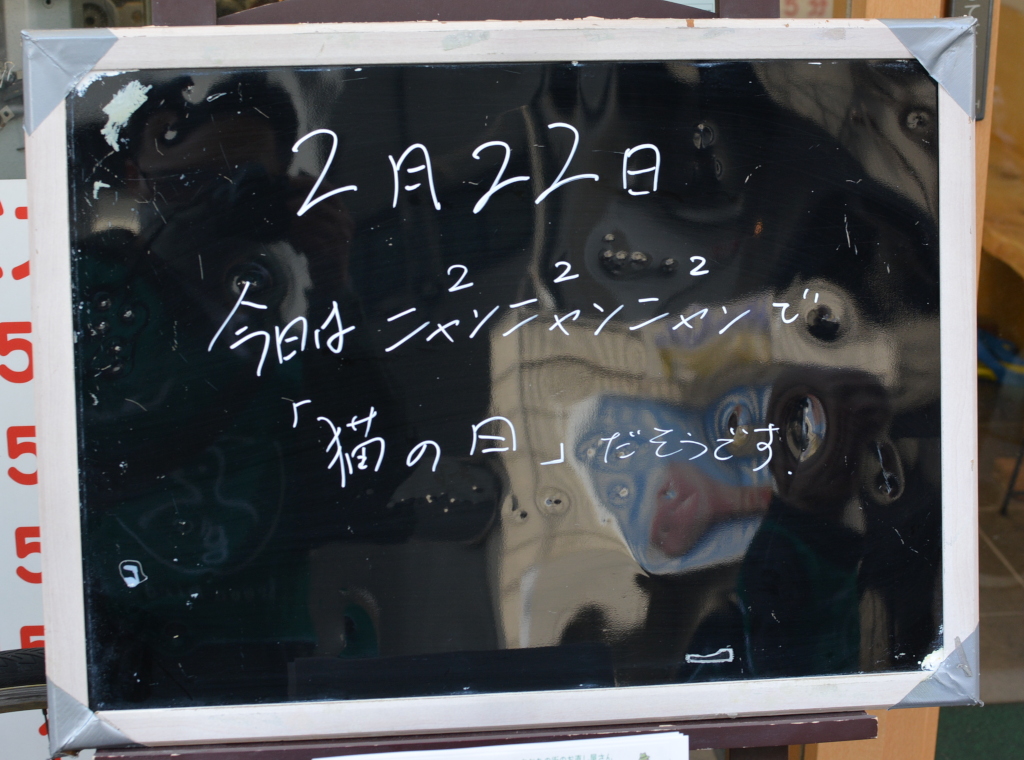 2月22日
2 2 2
今日はニャンニャンニャンで
「猫の日」だそうです.
5
5
5
5